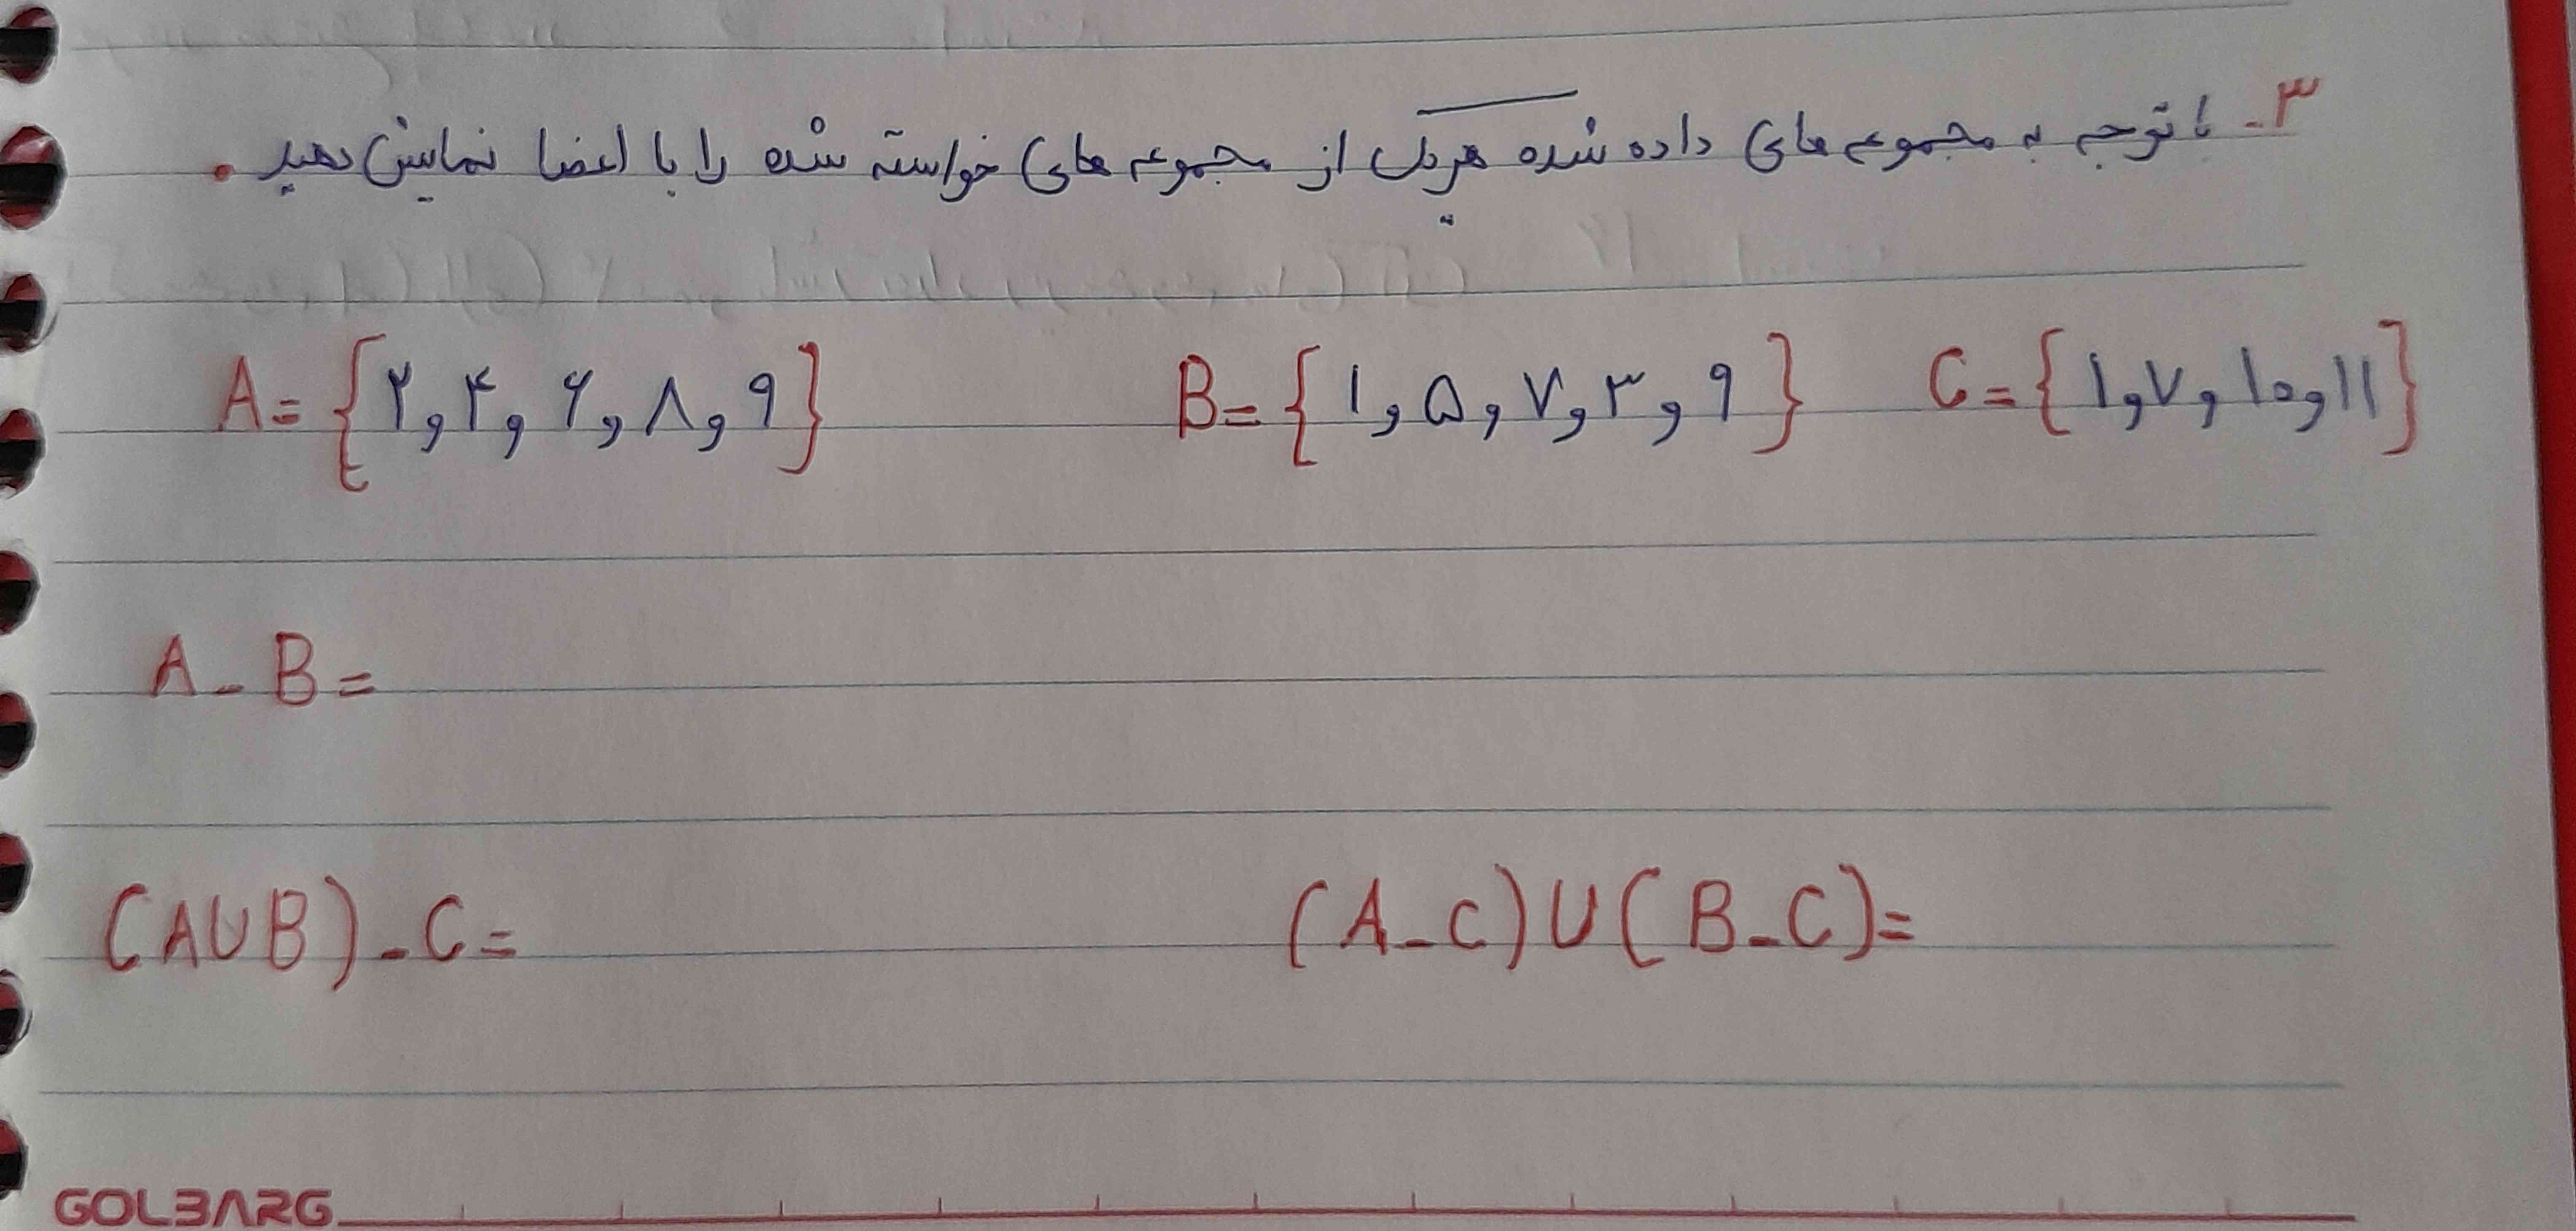 ۳- با توجه به مجموعه های داده شده هر یک از مجموعه های خواسته شده را با اعضا نمایش دهید.
A = {۲, ۴, ۶, ۸, ۹} B = {۱, ۵, ۷, ۳, ۹} C = {۱, ۷, ۱۰, ۱۱}
A - B =
(A ∪ B) - C = (A - C) ∪ (B - C) =
GOLBARG